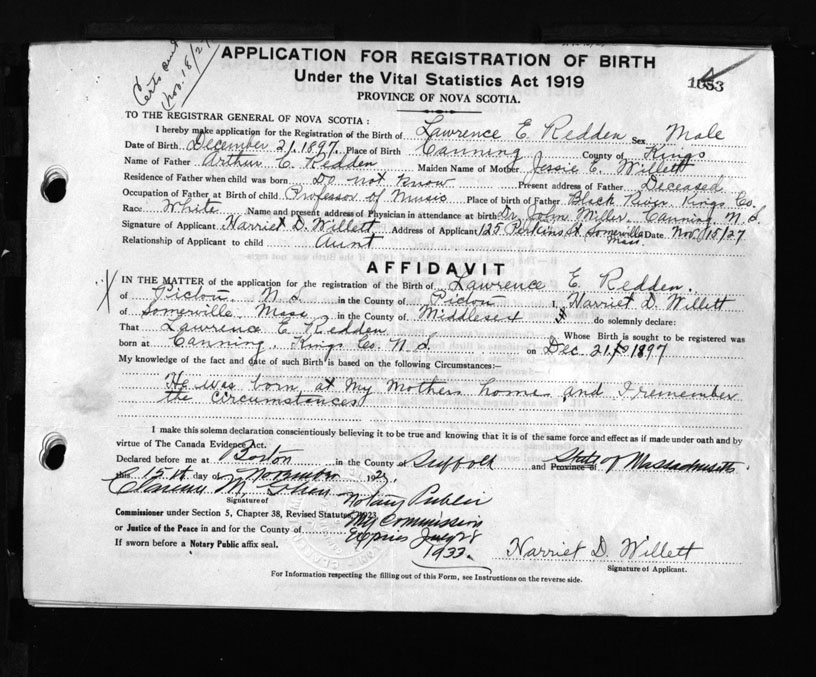 Certs out
Nov. 18/27
APPLICATION FOR REGISTRATION OF BIRTH
Under the Vital Statistics Act 1919
1653
PROVINCE OF NOVA SCOTIA.
TO THE REGISTRAR GENERAL OF NOVA SCOTIA :
I hereby make application for the Registration of the Birth of Lawrence E. Redden Sex Male
Date of Birth December 21, 1897. Place of Birth Canning County of Kings
Name of Father Arthur C. Redden Maiden Name of Mother Jessie E. Willett
Residence of Father when child was born Do not know Present address of Father Deceased
Occupation of Father at Birth of child Professor of Music Place of birth of Father Black River Kings Co.
Race White Name and present address of Physician in attendance at birth Dr. John Miller, Canning N.S.
Signature of Applicant Harriet D. Willett Address of Applicant 125 Perkins St Somerville Mass. Date Nov. 15/27
Relationship of Applicant to child Aunt
AFFIDAVIT
IN THE MATTER of the application for the registration of the Birth of Lawrence E. Redden.
of Pictou N.S. in the County of Pictou I, Harriet D. Willett
of Somerville Mass. in the County of Middlesex do solemnly declare:
That Lawrence E. Redden Whose Birth is sought to be registered was
born at Canning, Kings Co. N.S. on Dec. 21, 1897
My knowledge of the fact and date of such Birth is based on the following Circumstances:—
He was born at my Mothers home and I remember
the circumstances
I make this solemn declaration conscientiously believing it to be true and knowing that it is of the same force and effect as if made under oath and by
virtue of The Canada Evidence Act.
Declared before me at Boston in the County of Suffolk and Province of State of Massachusetts
this 15th day of November 192
M. Notary Public
Signature of
Commissioner under Section 5, Chapter 38, Revised Statutes, 1923. My Commission
or Justice of the Peace in and for the County of Expires 28
If sworn before a Notary Public affix seal. 1933. Harriet D. Willett
Signature of Applicant.
For Information respecting the filling out of this Form, see Instructions on the reverse side.